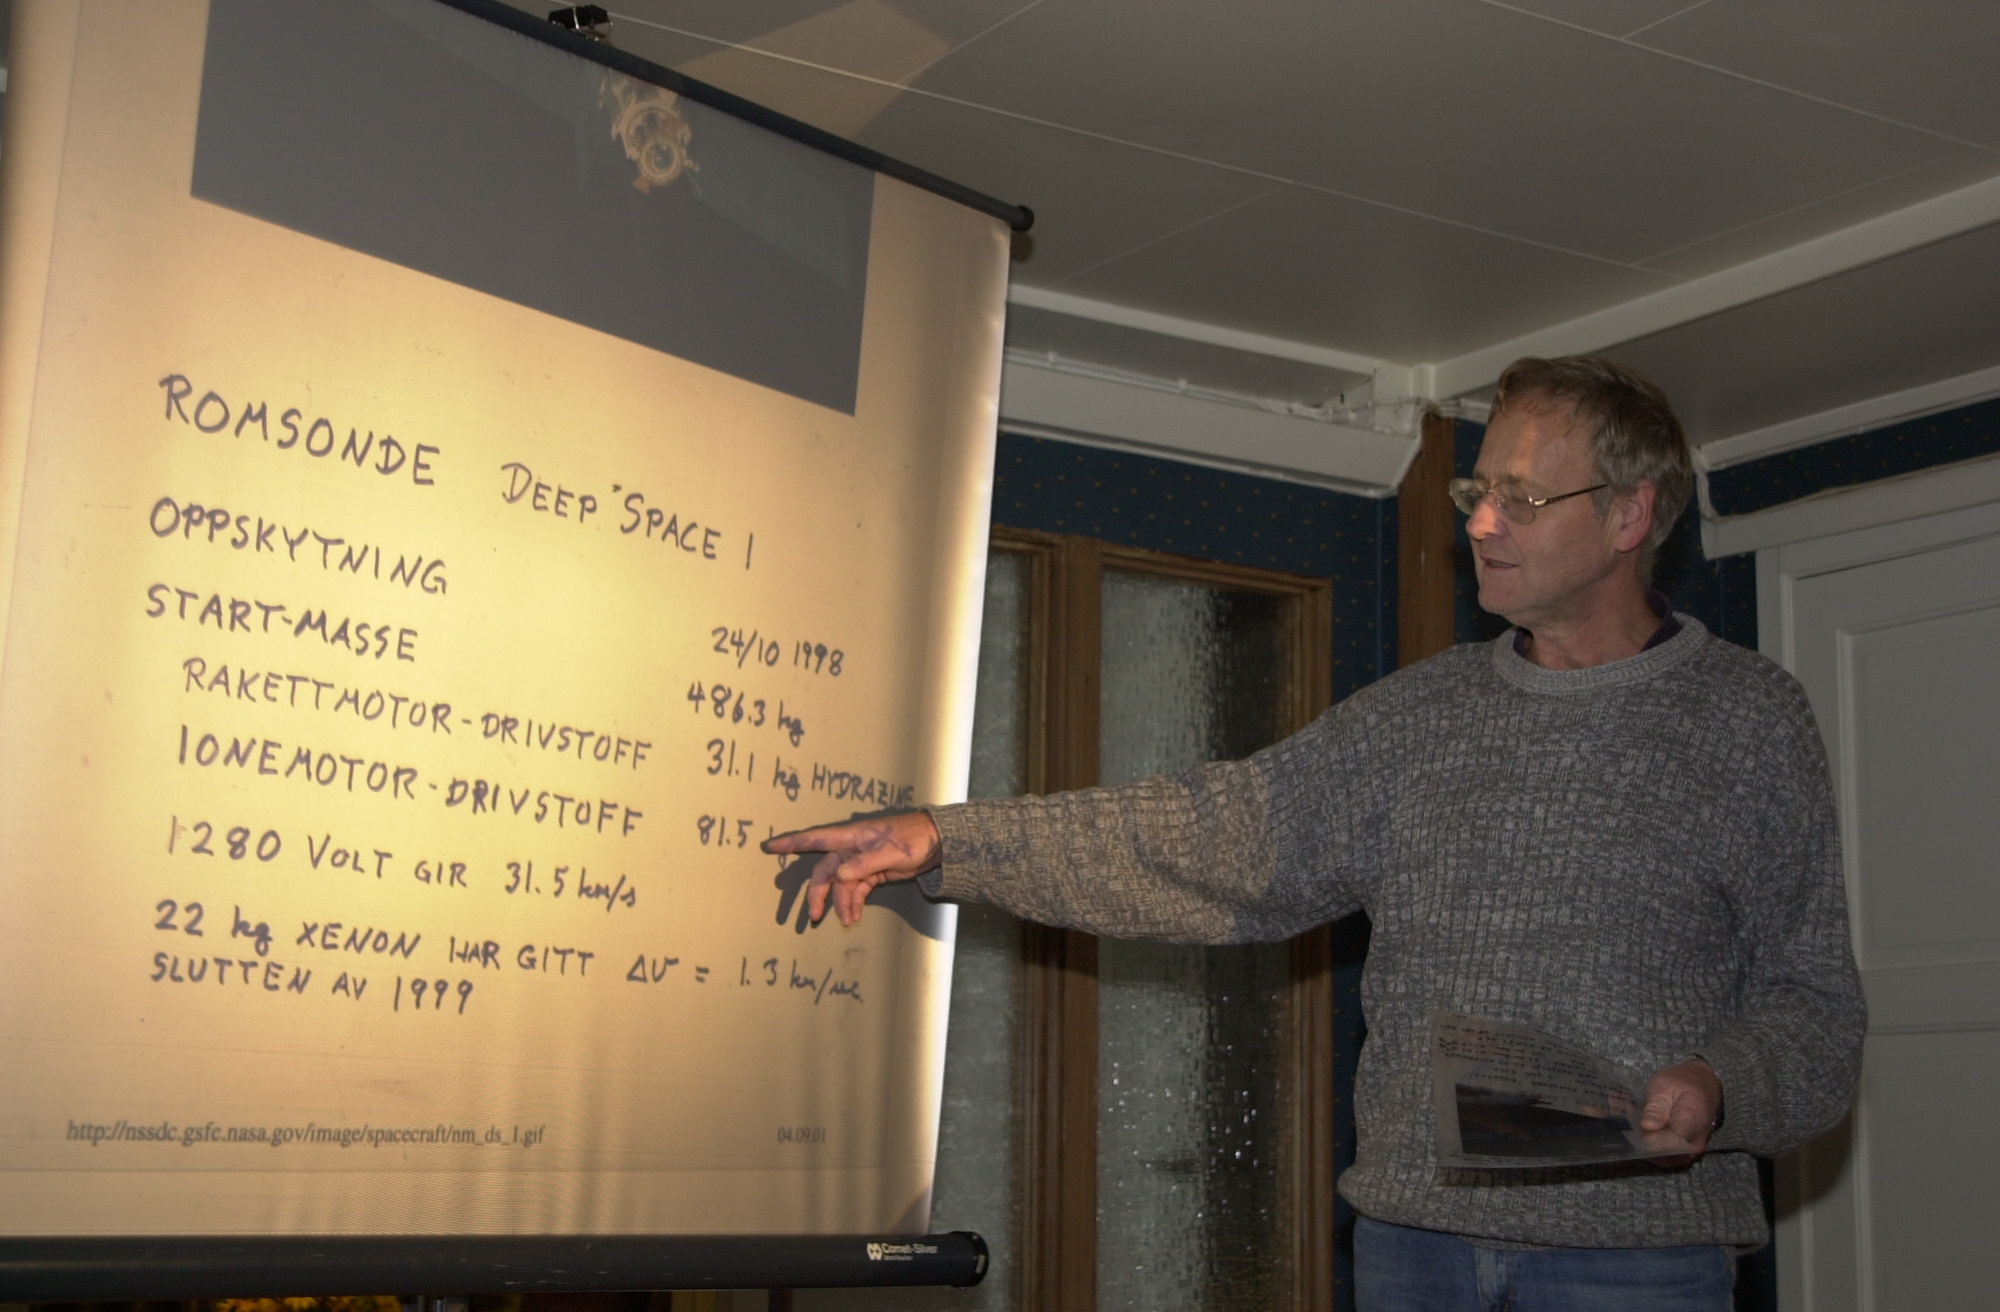 ROMSONDE DEEP SPACE 1
OPPSKYTNING 24/10 1998
START-MASSE 486.3 kg
RAKETTMOTOR-DRIVSTOFF 31.1 kg HYDRAZINE
IONEMOTOR-DRIVSTOFF 81.5
1280 VOLT GIR 31.5 km/s
22 kg XENON HAR GITT ΔV = 1.3 km/sec.
SLUTTEN AV 1999
http://nssdc.gsfc.nasa.gov/image/spacecraft/nm_ds_1.gif 04.09.01
Comet-Silver